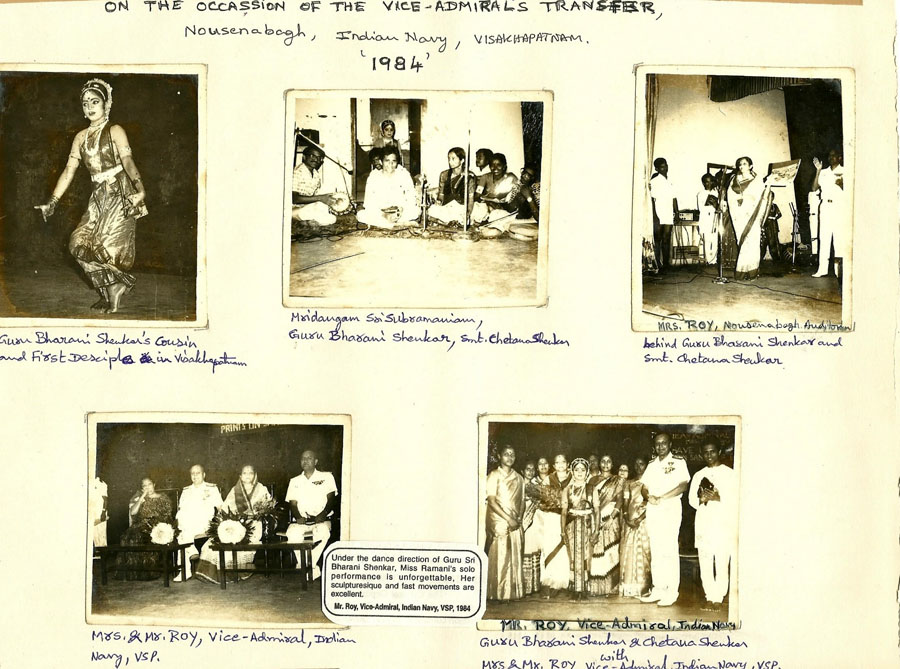 ON THE OCCASSION OF THE VICE-ADMIRAL'S TRANSFER,
Nousenabagh, Indian Navy, VISAKHAPATNAM.
'1984'
Guru Bharani Shenkar's Cousin
and First Desciple in Visakhapatnam
Mridangam Sri Subramaniam,
Guru Bharani Shenkar, Smt. Chetana Shenkar
MRS. ROY, Nousenabagh Auditorium
behind Guru Bharani Shenkar and
Smt. Chetana Shenkar
Mrs. & Mr. ROY, Vice-Admiral, Indian
Navy, VSP.
Under the dance direction of Guru Sri
Bharani Shenkar, Miss Ramani's solo
performance is unforgettable, Her
sculpturesique and fast movements are
excellent.
Mr. Roy, Vice-Admiral, Indian Navy, VSP, 1984
MR. ROY, Vice-Admiral, Indian Navy
Guru Bharani Shenkar & Chetana Shenkar
with
Mrs & Mr. ROY Vice-Admiral, Indian Navy, VSP.